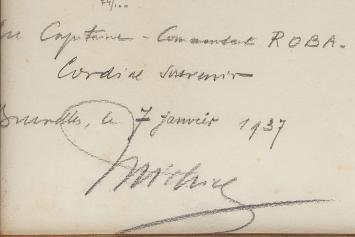 Capitaine - Commandant ROBA.
Cordial Souvenir
Bruxelles, le 7 janvier 1937